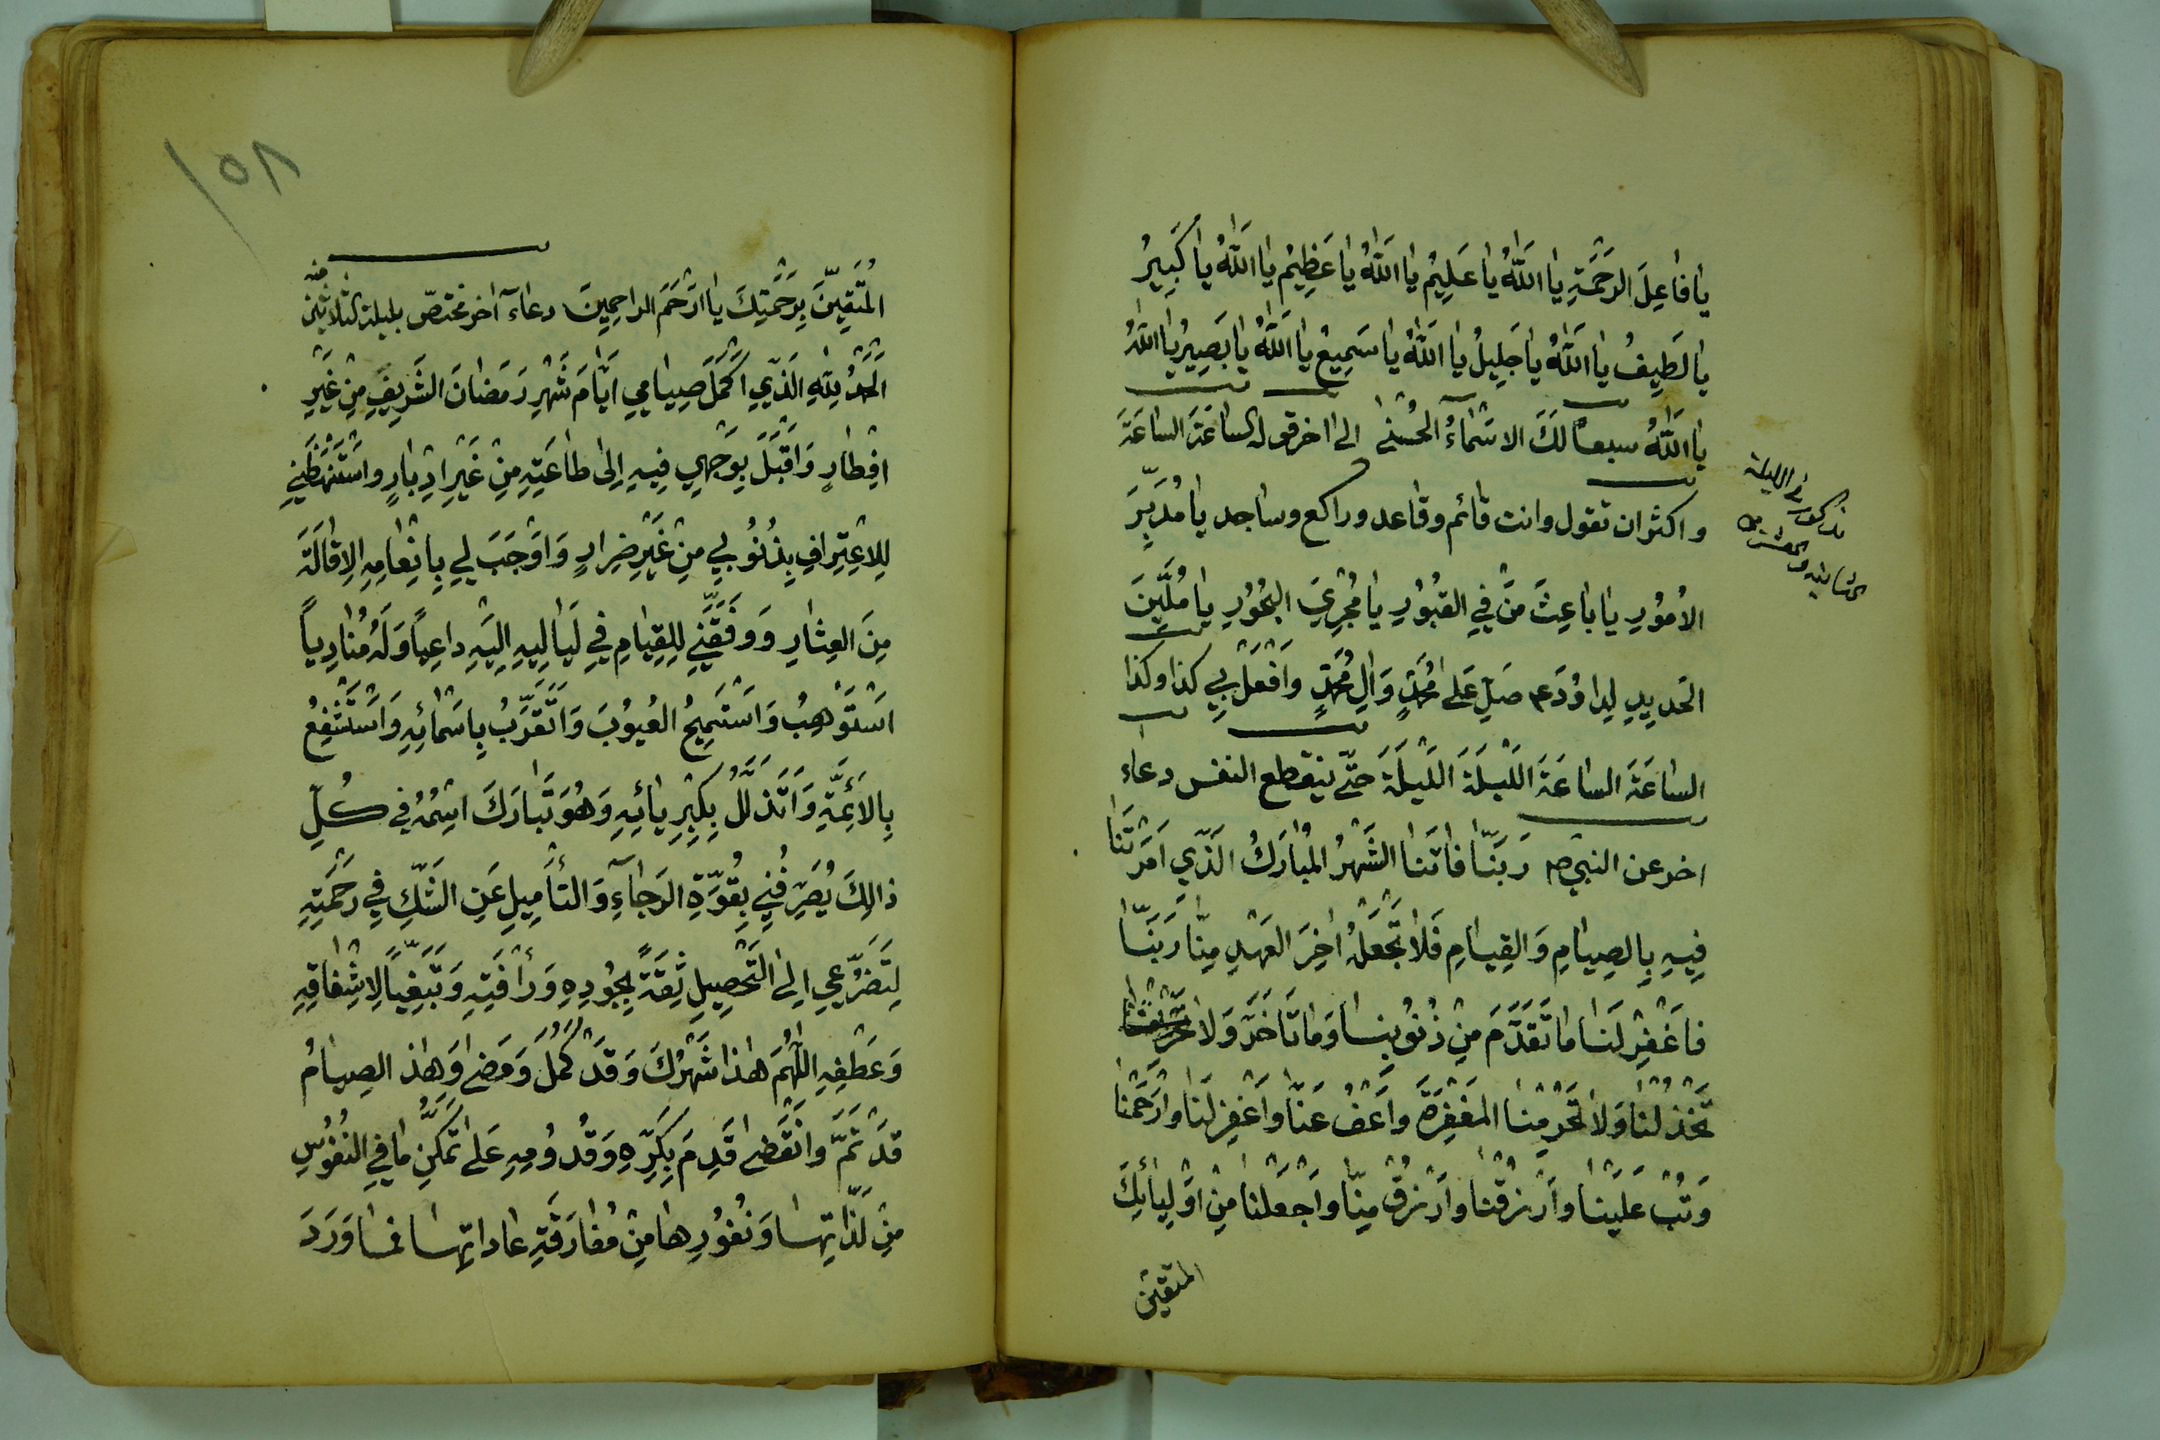 يٰا فٰاعِلَ الرَحْمَةِ يٰا اَللّٰهُ يٰا عَلِيْمُ يٰا اَللّٰهُ يٰا عَظِيْمُ يٰا اَللّٰهُ يٰا كَبِيرُ
يٰا لَطِيفُ يٰا اَللّٰهُ يٰا جَلِيلُ يٰا اَللّٰهُ يٰا سَمِيعُ يٰا اَللّٰهُ يٰا بَصِيرُ يٰا اَللّٰهُ
يٰا اَللّٰهُ سبعاً لَكَ الاَسْمٰاءُ الحُسْنىٰ الى اخر قوله السٰاعَةَ السٰاعَةَ
و اكثر ان تقول وانت قائم وقاعد وراكع وساجد يٰا مُدَبِّرَ
الاُمُوْرِ يٰا بٰاعِثَ مَنْ فِي القُبُوْرِ يٰا مُجْرِيَ البُحُوْرِ يٰا مُلَيِّنَ
الحَدِيدِ لِدٰاوُدَ ع صَلِّ عَلىٰ مُحَمَّدٍ وَالِ مُحَمَّدٍ وَافْعَلْ بِي كذا وكذا
السٰاعَةَ السٰاعَةَ اللَيْلَةَ اللَيْلَةَ حَتّى ينقطع النفس دعاء
اخر عن النبي ص رَبَّنٰا فٰاتَنٰا الشَهْرُ المُبٰارَكُ الَذّي اَمَرْتَنٰا
فِيهِ بِالصِيٰامِ وَالقِيٰامِ فَلاٰ تَجْعَلْهُ اٰخِرَ العَهْدِ مِنّٰا رَبَّنٰا
فَاغْفِرْ لَنٰا مٰا تَقَدَّمَ مِنْ ذُنُوْبِنٰا وَمٰا تَاَخَّرَ وَلاٰ
تَخْذُلْنٰا وَلاٰ تَحْرِمْنٰا المَغْفِرَةَ وَاعْفُ عَنّٰا وَاغْفِرْ لَنٰا وَارْحَمْنٰا
وَتُبْ عَلَيْنٰا وَارْزُقْنٰا وَارْزُقْ مِنّٰا وَاجْعَلْنٰا مِنْ اَوْلِيٰائِكَ
المتقين
مذكور في الليلة
١٥٨
المُتَّقِينَ بِرَحْمَتِكَ يٰا ارْحَمَ الراحِمِينَ دعاء اخر مختصّ بليلة الثلاثين منه
الحَمْدُ لِلّٰهِ الَذّي اَكْمَلَ صِيٰامِي اَيّٰامَ شَهْرِ رَمَضٰانَ الشَرِيفِ مِنْ غَيْرِ
اِفْطٰارٍ وَاَقْبَلَ بِوَجْهِي فِيهِ اِلىٰ طٰاعَتِهِ مِنْ غَيْرِ اِدْبٰارٍ واسْتَنْهَضَنِي
لِلاِعْتِرٰافِ بِذُنُوْبِي مِنْ غَيْرِ ضِرٰارٍ وَاَوْجَبَ لِي بِاِنْعٰامِهِ الاِقٰالَةَ
مِنَ العِثٰارِ وَوَفَّقَنِي لِلقِيٰامِ فِي لَيٰالِيهِ اِلَيْهِ داعِياً وَلَهُ مُنٰادِياً
اَسْتَوْهِبُ وَاَسْتَمِيحُ العُيوُبَ وَاَتَقَرَّبُ بِاَسْمٰائِهِ وَاَسْتَشْفِعُ
بِالاَئِمَّةِ وَاَتَذَلَّلُ بِكِبْرِيٰائِهِ وَهُوَ تَبٰارَكَ اسْمُهُ فِي كُلِّ
ذٰالِكَ يُصَرِفُنِي بِقُوَّةِ الرَجٰاءِ وَالتَأْمِيلِ عَنِ الشَكِّ فِي رَحْمَتِهِ
لِتَضَرُّعِي اِلىٰ التَحْصِيلِ ثِقَةً بِجُودِهِ وَرَأْفَتِهِ وَتَبَغِّياً لِاِشْفٰاقِهِ
وَعَطْفِهِ اللّٰهُمَّ هٰذٰا شَهْرُكَ وَقَدْ كَمُلَ وَمَضىٰ وَهٰذَ الصِيٰامُ
قَدْ تَمَّ وَانْقَضىٰ قَدِمَ بِكَرْهِ وَقُدُومِهِ عَلىٰ تَمَكُّنِ مٰا فِي النُفُوْسِ
مِنْ لَذّٰاتِهٰا وَنُفُوْرِهٰا مِنْ مُفٰارَقَةِ عٰادٰاتِهٰا فَمٰا وَرَدَ